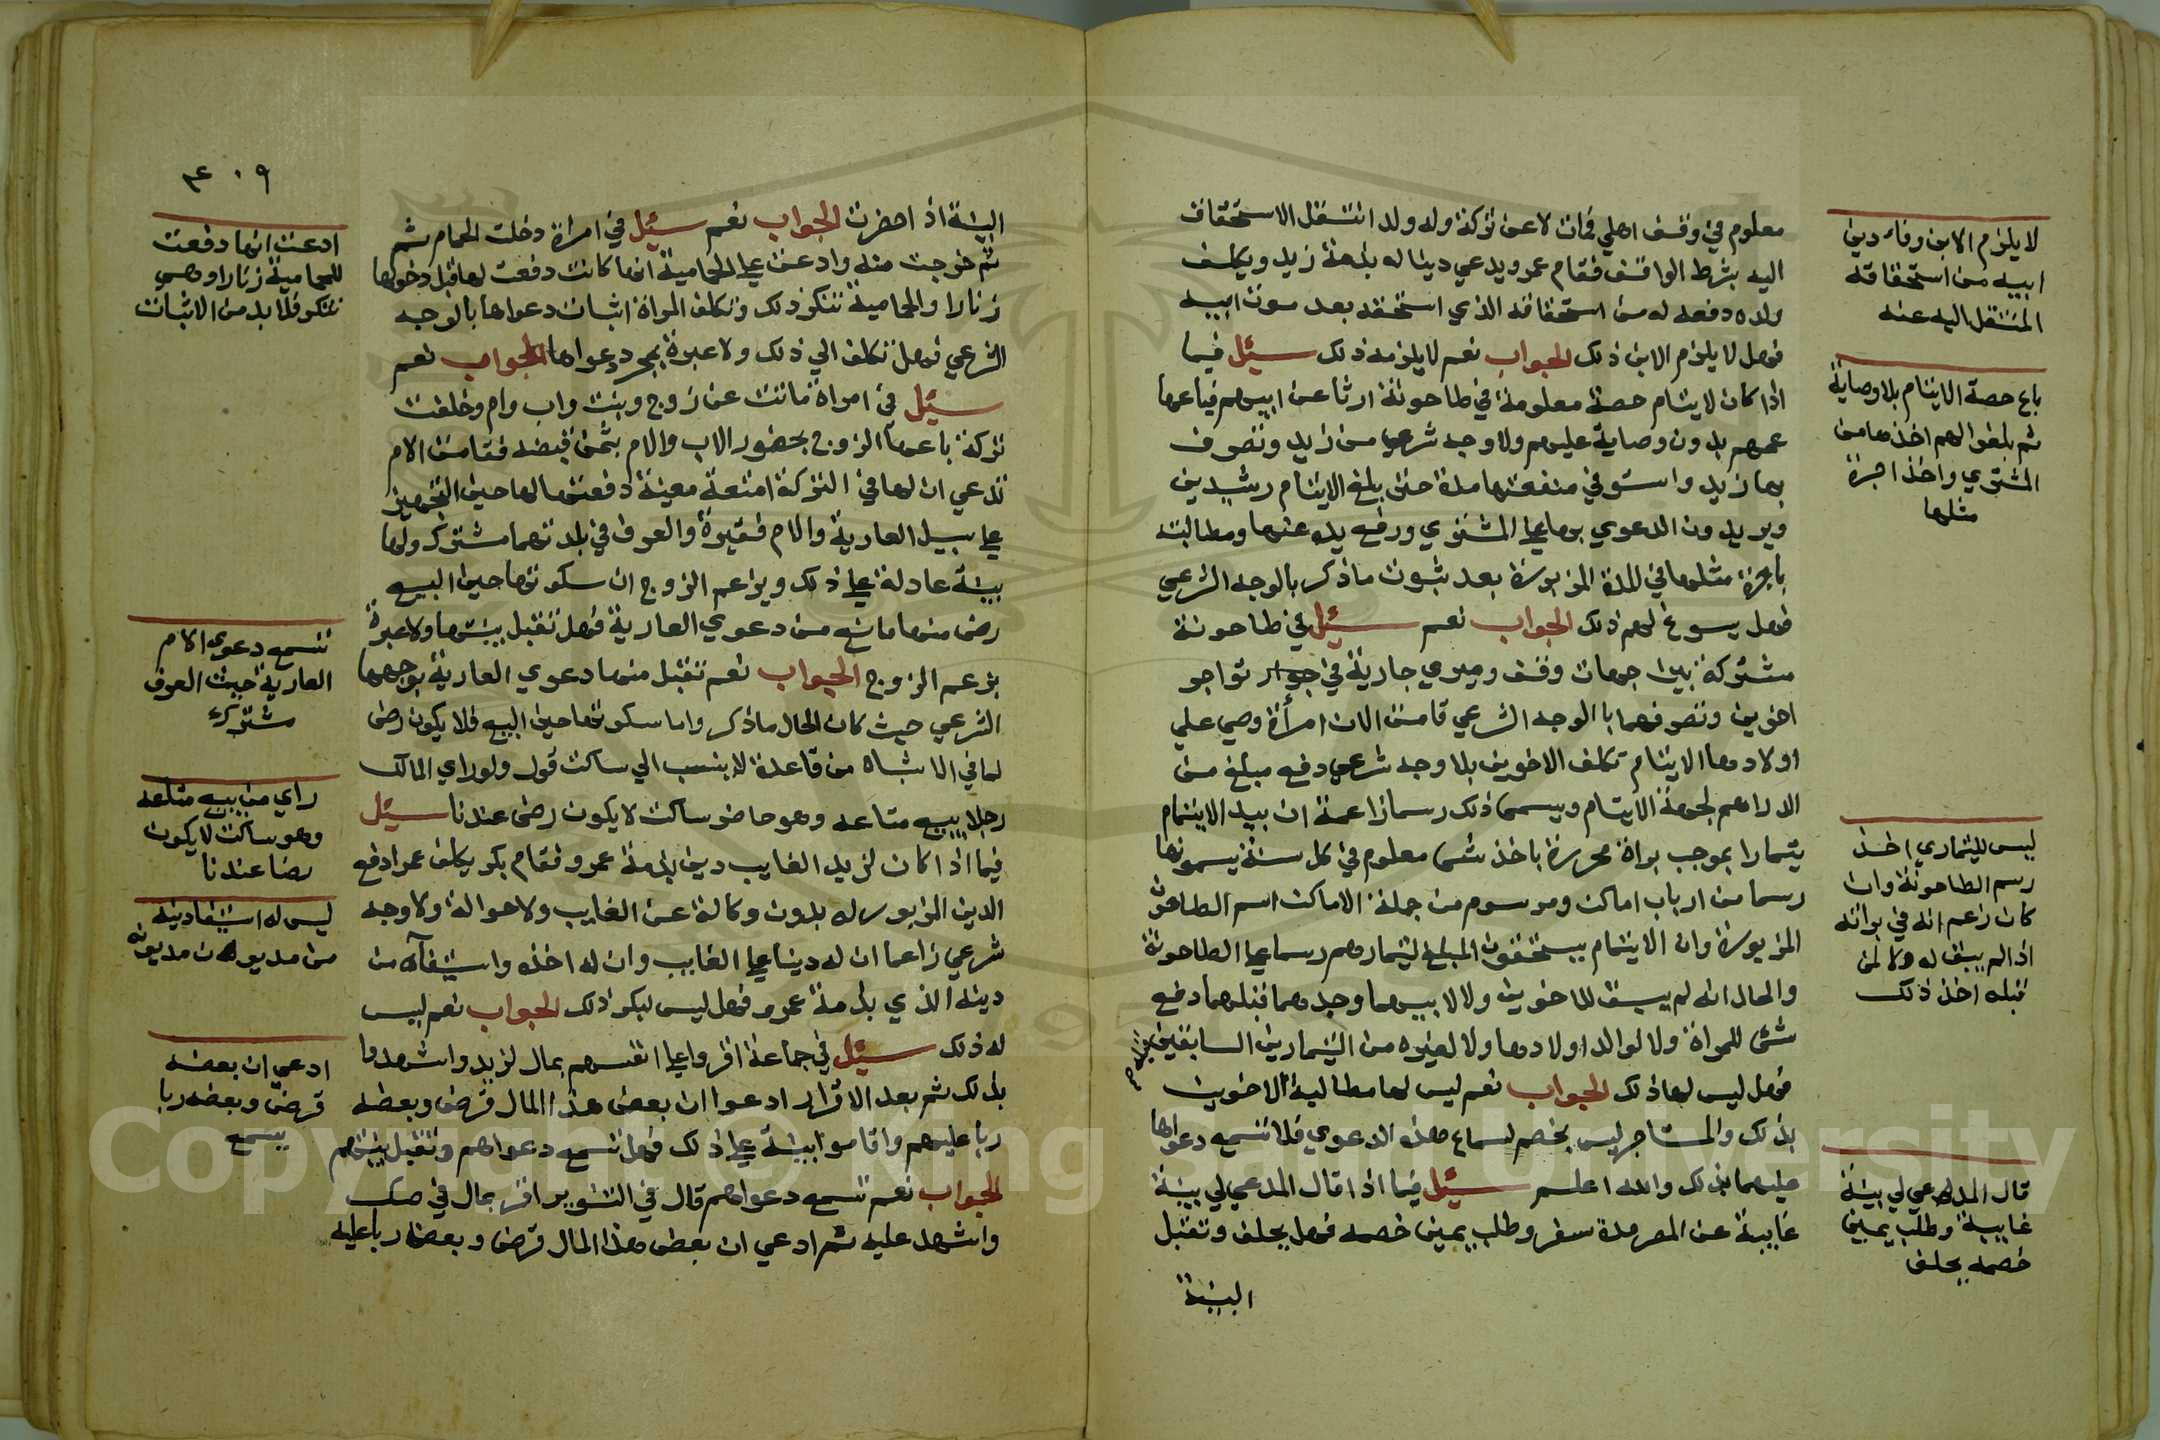 معلوم في وقف اهلي فمات لا عن تركة وله ولد انتقل الاستحقاق
اليه بشرط الواقف فقام عمرو يدعي دينا له بذمة زيد ويكلف
ولده دفعه له من استحقاقه الذي استحقه بعد موت ابيه
فهل لا يلزم الابن ذلك الجواب نعم لا يلزمه ذلك سئل فيما
اذا كان لايتام حصة معلومة في طاحونة ارثا عن ابيهم فباعها
عمهم بدون وصاية عليهم ولا وجه شرعي من زيد وتصرف
بها زيد واستوفي منفعتها مدة حتى بلغ الايتام رشيدين
ويريدون الدعوي بها علي المشتري ورفع يده عنها ومطالبته
باجرة مثلها في المدة المزبورة بعد ثبوت ما ذكر بالوجه الشرعي
فهل يسوغ لهم ذلك الجواب نعم سئل في طاحونة
مشتركة بين جهات وقف وميري جارية في تواجر
اخوين وتصرفهما با الوجه الشرعي قامت الان امرأة وصي علي
اولادها الايتام تكلف الاخوين بلا وجه شرعي دفع مبلغ من
الدراهم لجهة الايتام ويسمى ذلك رسما زاعمة ان بيد الايتام
تيمارا بموجب براة محررة باخذ شى معلوم في كل سنة يسمونها
رسما من ارباب اماكن ومرسوم من جملة الاماكن اسم الطاحونة
المزبورة وان الايتام يستحقون المبلغ لتيمارهم رسما علي الطاحونة
والحال انه لم يسبق للاخوين ولا لابيهما وجدهما قبلهما دفع
شئ للمراة ولا لوالد اولادها ولا لغيره من التيمارين السابقين
فهل ليس لها ذلك الجواب نعم ليس لها مطالبة الاخوين
بذلك والمستاجر ليس بخصم لسماع هذه الدعوي فلا تسمع دعواها
عليهما بذلك والله اعلم سئل فيما اذا قال المدعي لي بينة
غايبة عن المصر مدة سفر وطلب يمين خصمه فهل يحلف وتقبل
البينة
لا يلزم الابن وفاء دين
ابيه من استحقاقه
المنتقل اليه عنه
باع حصة الايتام بلا وصاية
ثم بلغوا لهم اخذها من
المشتري واخذ اجرة
مثلها
ليس للتيماري اخذ
رسم الطاحونة وان
كان زعم انه في براته
اذا لم يسبق له ولا لمن
قبله اخذ ذلك
قال المدعي لي بينة
غايبة وطلب يمين
خصمه يحلف
٤٠٩
البينة اذ احضرت الجواب نعم سئيل في امراة دخلت الحمام ثم
ثم خرجت منه وادعت علي الحمامية انها كانت دفعت لها قبل دخولها
زنارا والحمامية تنكر ذلك وتكلف المراة اثبات دعواها بالوجه
الشرعي فهل تكلف الي ذلك ولا عبرة بمجرد دعواها الجواب نعم
سئيل في امراة ماتت عن زوج وبنت واب وام وخلفت
تركة باعها الزوج بحضور الاب والام بثمن قبضه فقامت الام
تدعي ان لها في التركة امتعة معينة دفعتها لها حين التجهيز
علي سبيل العارية والام فقيرة والعرف في بلدتهما مشترك ولها
بينة عادلة علي ذلك ويزاعم الزوج ان سكوتها حين البيع
رضى منها مانع من دعوي العارية فهل تقبل بينتها ولا عبرة
بزعم الزوج الجواب نعم تقبل منها دعوي العارية بوجهها
الشرعي حيث كان الحال ما ذكر واما سكوتها حين البيع فلا يكون رضى
لما في الاشباه من قاعدة لا ينسب الي ساكت قول ولو راي المالك
رجلا يبيع متاعه وهو حاضر ساكت لا يكون رضى عندنا سئيل
فيما اذا كان لزيد الغايب دين بذمة عمرو فقام بكر يكلف عمرا دفع
الدين المزبور له بدون وكالة عن الغايب ولا حوالة ولا وجه
شرعي زاعما ان له دينا علي الغايب وان له اخذه واستيفآه من
دينه الذي بذمة عمرو فهل ليس لبكر ذلك الجواب نعم ليس
له ذلك سئيل في جماعة اقروا علي انفسهم بمال لزيد واشهدوا
بذلك ثم بعد الاقرار ادعوا ان بعض هذا المال قرض وبعضه
ربا عليهم واقاموا بينة علي ذلك فهل تسمع دعواهم وتقبل بينتهم
الجواب نعم تسمع دعواهم قال في التنوير اقر بمال في صك
واشهد عليه ثم ادعي ان بعض هذا المال قرض وبعضه ربا عليه
ادعت انها دفعت
للحمامية زنارا وهي
تنكر فلا بد من الاثبات
تسمع دعوى الام
العارية حيث العرف
مشترك
راي من يبيع متاعه
وهو ساكت لا يكون
رضا عندنا
ليس له استيفا دينه
من مديون مديونه
ادعي ان بعضه
قرض وبعضه ربا
يسمع
Copyright © King Saud University